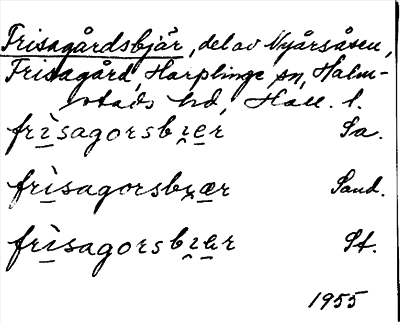 Frisagårdsbjär, del av Nyårsåsen,
Frisagård, Harplinge sn, Halm-
stads hd, Hall. l.
frìsagorsbɪ̯er Sa.
frìsagorsbɪ̯ær Sand.
frìsagorsbɪ̯er St.
1955